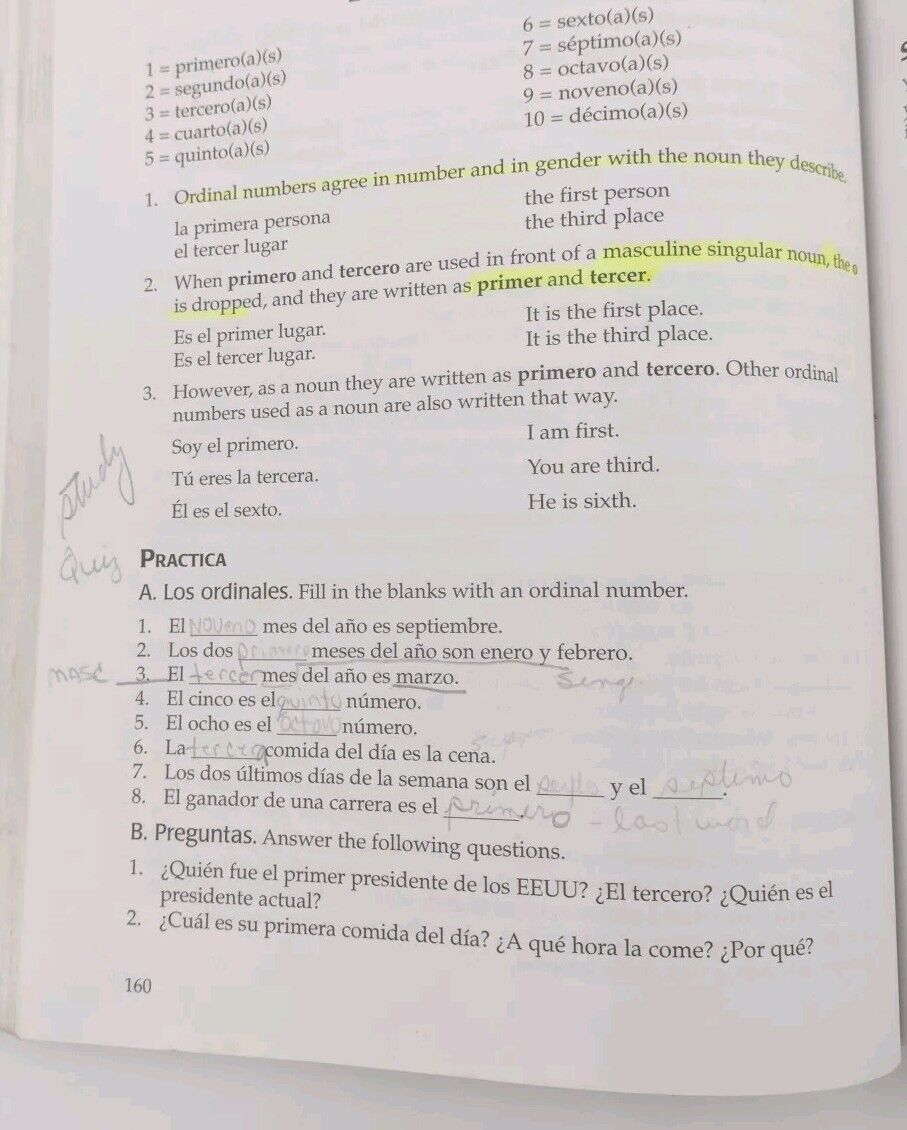 1 = primero(a)(s)
2 = segundo(a)(s)
3 = tercero(a)(s)
4 = cuarto(a)(s)
5 = quinto(a)(s)
6 = sexto(a)(s)
7 = séptimo(a)(s)
8 = octavo(a)(s)
9 = noveno(a)(s)
10 = décimo(a)(s)
1. Ordinal numbers agree in number and in gender with the noun they describe.
la primera persona the first person
el tercer lugar the third place
2. When primero and tercero are used in front of a masculine singular noun, the o
is dropped, and they are written as primer and tercer.
Es el primer lugar. It is the first place.
Es el tercer lugar. It is the third place.
3. However, as a noun they are written as primero and tercero. Other ordinal
numbers used as a noun are also written that way.
Soy el primero. I am first.
Tú eres la tercera. You are third.
Él es el sexto. He is sixth.
study
Quiz
PRACTICA
A. Los ordinales. Fill in the blanks with an ordinal number.
1. El Noveno mes del año es septiembre.
2. Los dos primero meses del año son enero y febrero.
masc 3. El tercer mes del año es marzo. Sing
4. El cinco es el quinto número.
5. El ocho es el octavo número.
6. La tercera comida del día es la cena.
7. Los dos últimos días de la semana son el sexto y el septimo.
8. El ganador de una carrera es el primero. - last word
B. Preguntas. Answer the following questions.
1. ¿Quién fue el primer presidente de los EEUU? ¿El tercero? ¿Quién es el
presidente actual?
2. ¿Cuál es su primera comida del día? ¿A qué hora la come? ¿Por qué?
160